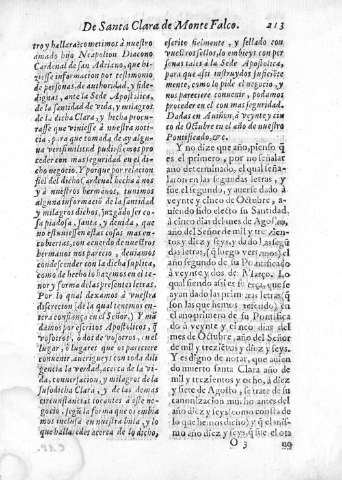 De Santa Clara de Monte Falco. 213
tro y hallara: cometimos à nuestro
amado hijo Neapolion Diacono
Cardenal de san Adriano, que hi-
ziesse informacion por testimonio
de personas, de authoridad, y fide-
dignas, ante la Sede Apostolica,
de la santidad de vida, y milagros
de la dicha Clara, y hecha procu-
rasse que viniesse à nuestra noti-
cia, para que tomada de ay algu-
na verisimilitud pudiessemos pro-
ceder con mas seguridad en el di-
cho negocio. Y porque por relacion
fiel del dicho Cardenal hecha à nos
y à nuestros hermanos, tuuimos
alguna informació de la santidad
y milagros dichos, juzgádo ser co-
sa piadosa, santa, y deuida, que
no estuuiessen estas cosas mas en-
cubiertas, con acuerdo de nuestros
hermanos nos parecio, deuiamos
condescender con la dicha suplica,
como de hecho lo hazemos en el te-
nor y forma de las presentes letras.
Por lo qual dexamos à vuestra
discrecion (de la qual tenemos en-
tera confiança en el Señor.) Y má
damos por escritos Apostolicos, q̃
vosotros, ò dos de vosotros, en el
lugar, ò lugares que os pareciere
conuenir aueriguey s con toda dili
gencia la verdad, acerca de la vi-
da, conuersacion, y milagros de la
susodicha Clara, y de las demas
circunstancias tocantes à esse ne-
gocio, segũ la forma que os embia
mos inclusa en nuestra bula, y lo
que hallaredes acerca de lo dicho,
escrito fielmente, y sellado con
vuestros sellos, lo embieys con per
sonas tales à la Sede Apostolica,
para que assi instruydos suficiéte
mente, como lo pide el negocio, y
nos pareciere conuenir, podamos
proceder en el con mas seguridad.
Dadas en Auiñon, à veynte y cin
co de Octubre en el año de nuestro
Pontificado, &c.
Y no dize que año, pienso q̃
es el primero, por no señalar
año determinado, el qual seña-
laron en las segundas letras, y
fue el segundo, y auerse dado à
veynte y cinco de Octubre, a-
uiendo sido electo su Santidad,
à cinco dias del mes de Agosto,
año del Señor de mil y trezien
tos y diez y seys, y dado las segũ
das letras, (q̃ luego veremos) el
año segundo de su Pontificado
à veynte y dos de Março. Lo
qual siendo assi es fuerça, que se
ayan dado las primeras letras (q̃
son las que hemos referido) en
el año primero de su Pontifica
do à veynte y cinco dias del
mes de Octubre, año del Señor
de mil y trezientos, y diez y seys.
Y es digno de notar, que auien
do muerto santa Clara año de
mil y trezientos y ocho, à diez
y siete de Agosto, se trate de su
canonizacion mucho antes del
año diez y seys (como consta de
lo que hemos dicho) y q̃ el mis-
mo año diez y seys, q̃ fue el ota
O 3